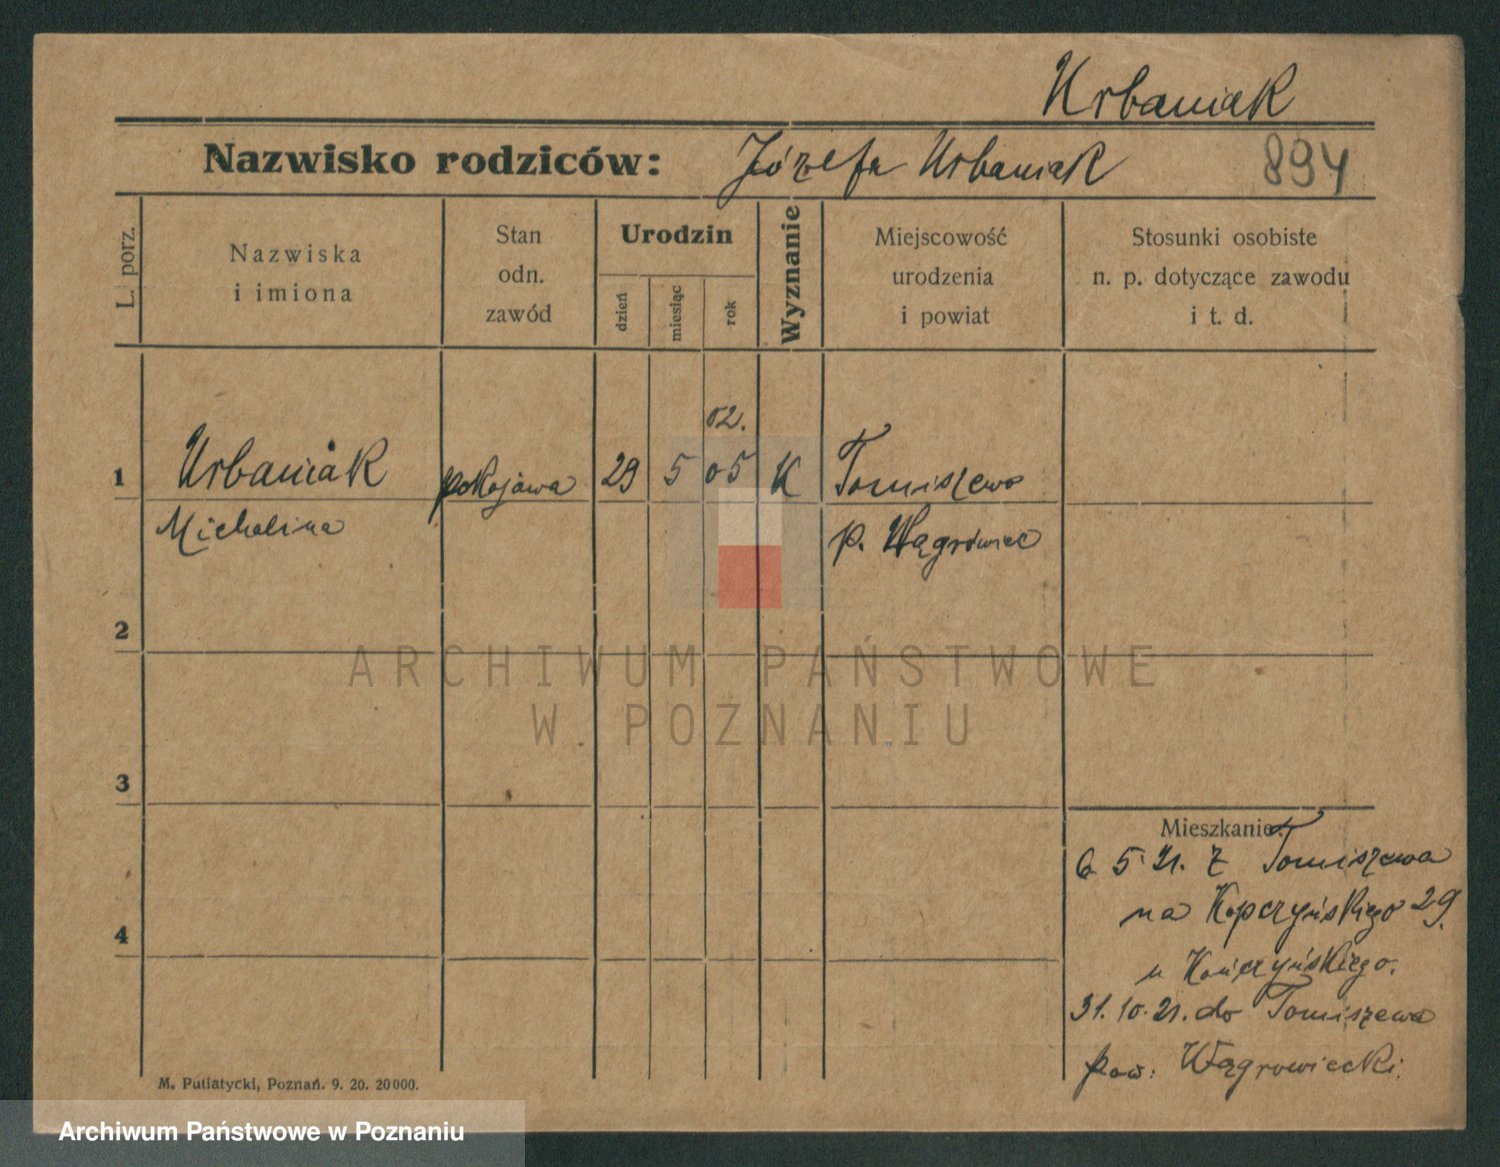 Urbaniak
Nazwisko rodziców: Józefa Urbaniak 894
L. porz.
Nazwiska
i imiona
Stan
odn.
zawód
Urodzin
dzień
miesiąc
rok
Wyznanie
Miejscowość
urodzenia
i powiat
Stosunki osobiste
n. p. dotyczące zawodu
i t. d.
02.
1 Urbaniak pokojowa 29 5 05 K Tomiszewo
Michalina p. Wągrowiec
2
ARCHIWUM PAŃSTWOWE
W POZNANIU
3
Mieszkanie:
6 5 21. z Tomiszewa
na Kopczyńskiego 29.
4
u Kończyńskiego.
31. 10. 21. do Tomiszewa
pow: Wągrowiecki.
M. Putiatycki, Poznań. 9. 20. 20000.
Archiwum Państwowe w Poznaniu